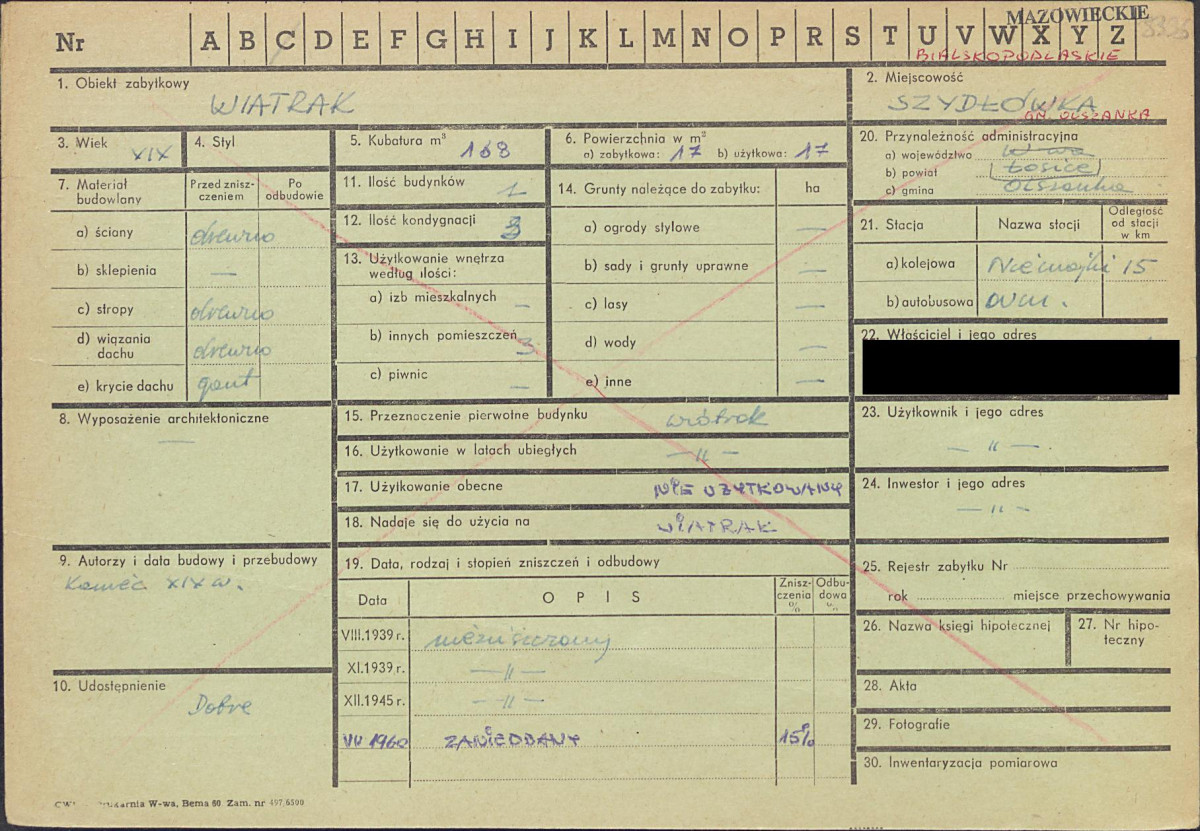 MAZOWIECKIE
Nr A B C D E F G H I J K L M N O P R S T U V W X Y Z
BIALSKOPODLASKIE
1. Obiekt zabytkowy
WIATRAK
2. Miejscowość
SZYDŁÓWKA
GM. OLSZANKA
3. Wiek XIX
4. Styl
5. Kubatura m³ 168
6. Powierzchnia w m²
a) zabytkowa: 17 b) użytkowa: 17
20. Przynależność administracyjna
a) województwo W-wa
b) powiat Łosice
c) gmina Olszanka
7. Materiał budowlany
Przed zniszczeniem
Po odbudowie
a) ściany drewno
b) sklepienia —
c) stropy drewno
d) wiązania dachu drewno
e) krycie dachu gont
11. Ilość budynków 1
12. Ilość kondygnacji 3
13. Użytkowanie wnętrza według ilości:
a) izb mieszkalnych —
b) innych pomieszczeń 3
c) piwnic —
14. Grunty należące do zabytku: ha
a) ogrody stylowe —
b) sady i grunty uprawne —
c) lasy —
d) wody —
e) inne —
21. Stacja
Nazwa stacji
Odległość od stacji w km
a) kolejowa Niemojki 15
b) autobusowa
22. Właściciel i jego adres
8. Wyposażenie architektoniczne
—
15. Przeznaczenie pierwotne budynku wiatrak
16. Użytkowanie w latach ubiegłych —"—
17. Użytkowanie obecne NIE UŻYTKOWANY
18. Nadaje się do użycia na WIATRAK
23. Użytkownik i jego adres
— " —
24. Inwestor i jego adres
— " —
9. Autorzy i data budowy i przebudowy
Koniec XIX w.
19. Data, rodzaj i stopień zniszczeń i odbudowy
Data OPIS Zniszczenia % Odbudowa %
VIII.1939 r. niezniszczony
XI.1939 r. —"—
XII.1945 r. —"—
1960 ZANIEDBANY 15%
25. Rejestr zabytku Nr
rok miejsce przechowywania
26. Nazwa księgi hipotecznej
27. Nr hipoteczny
10. Udostępnienie
Dobre
28. Akta
29. Fotografie
30. Inwentaryzacja pomiarowa
Drukarnia W-wa, Bema 60 Zam. nr 497/6500